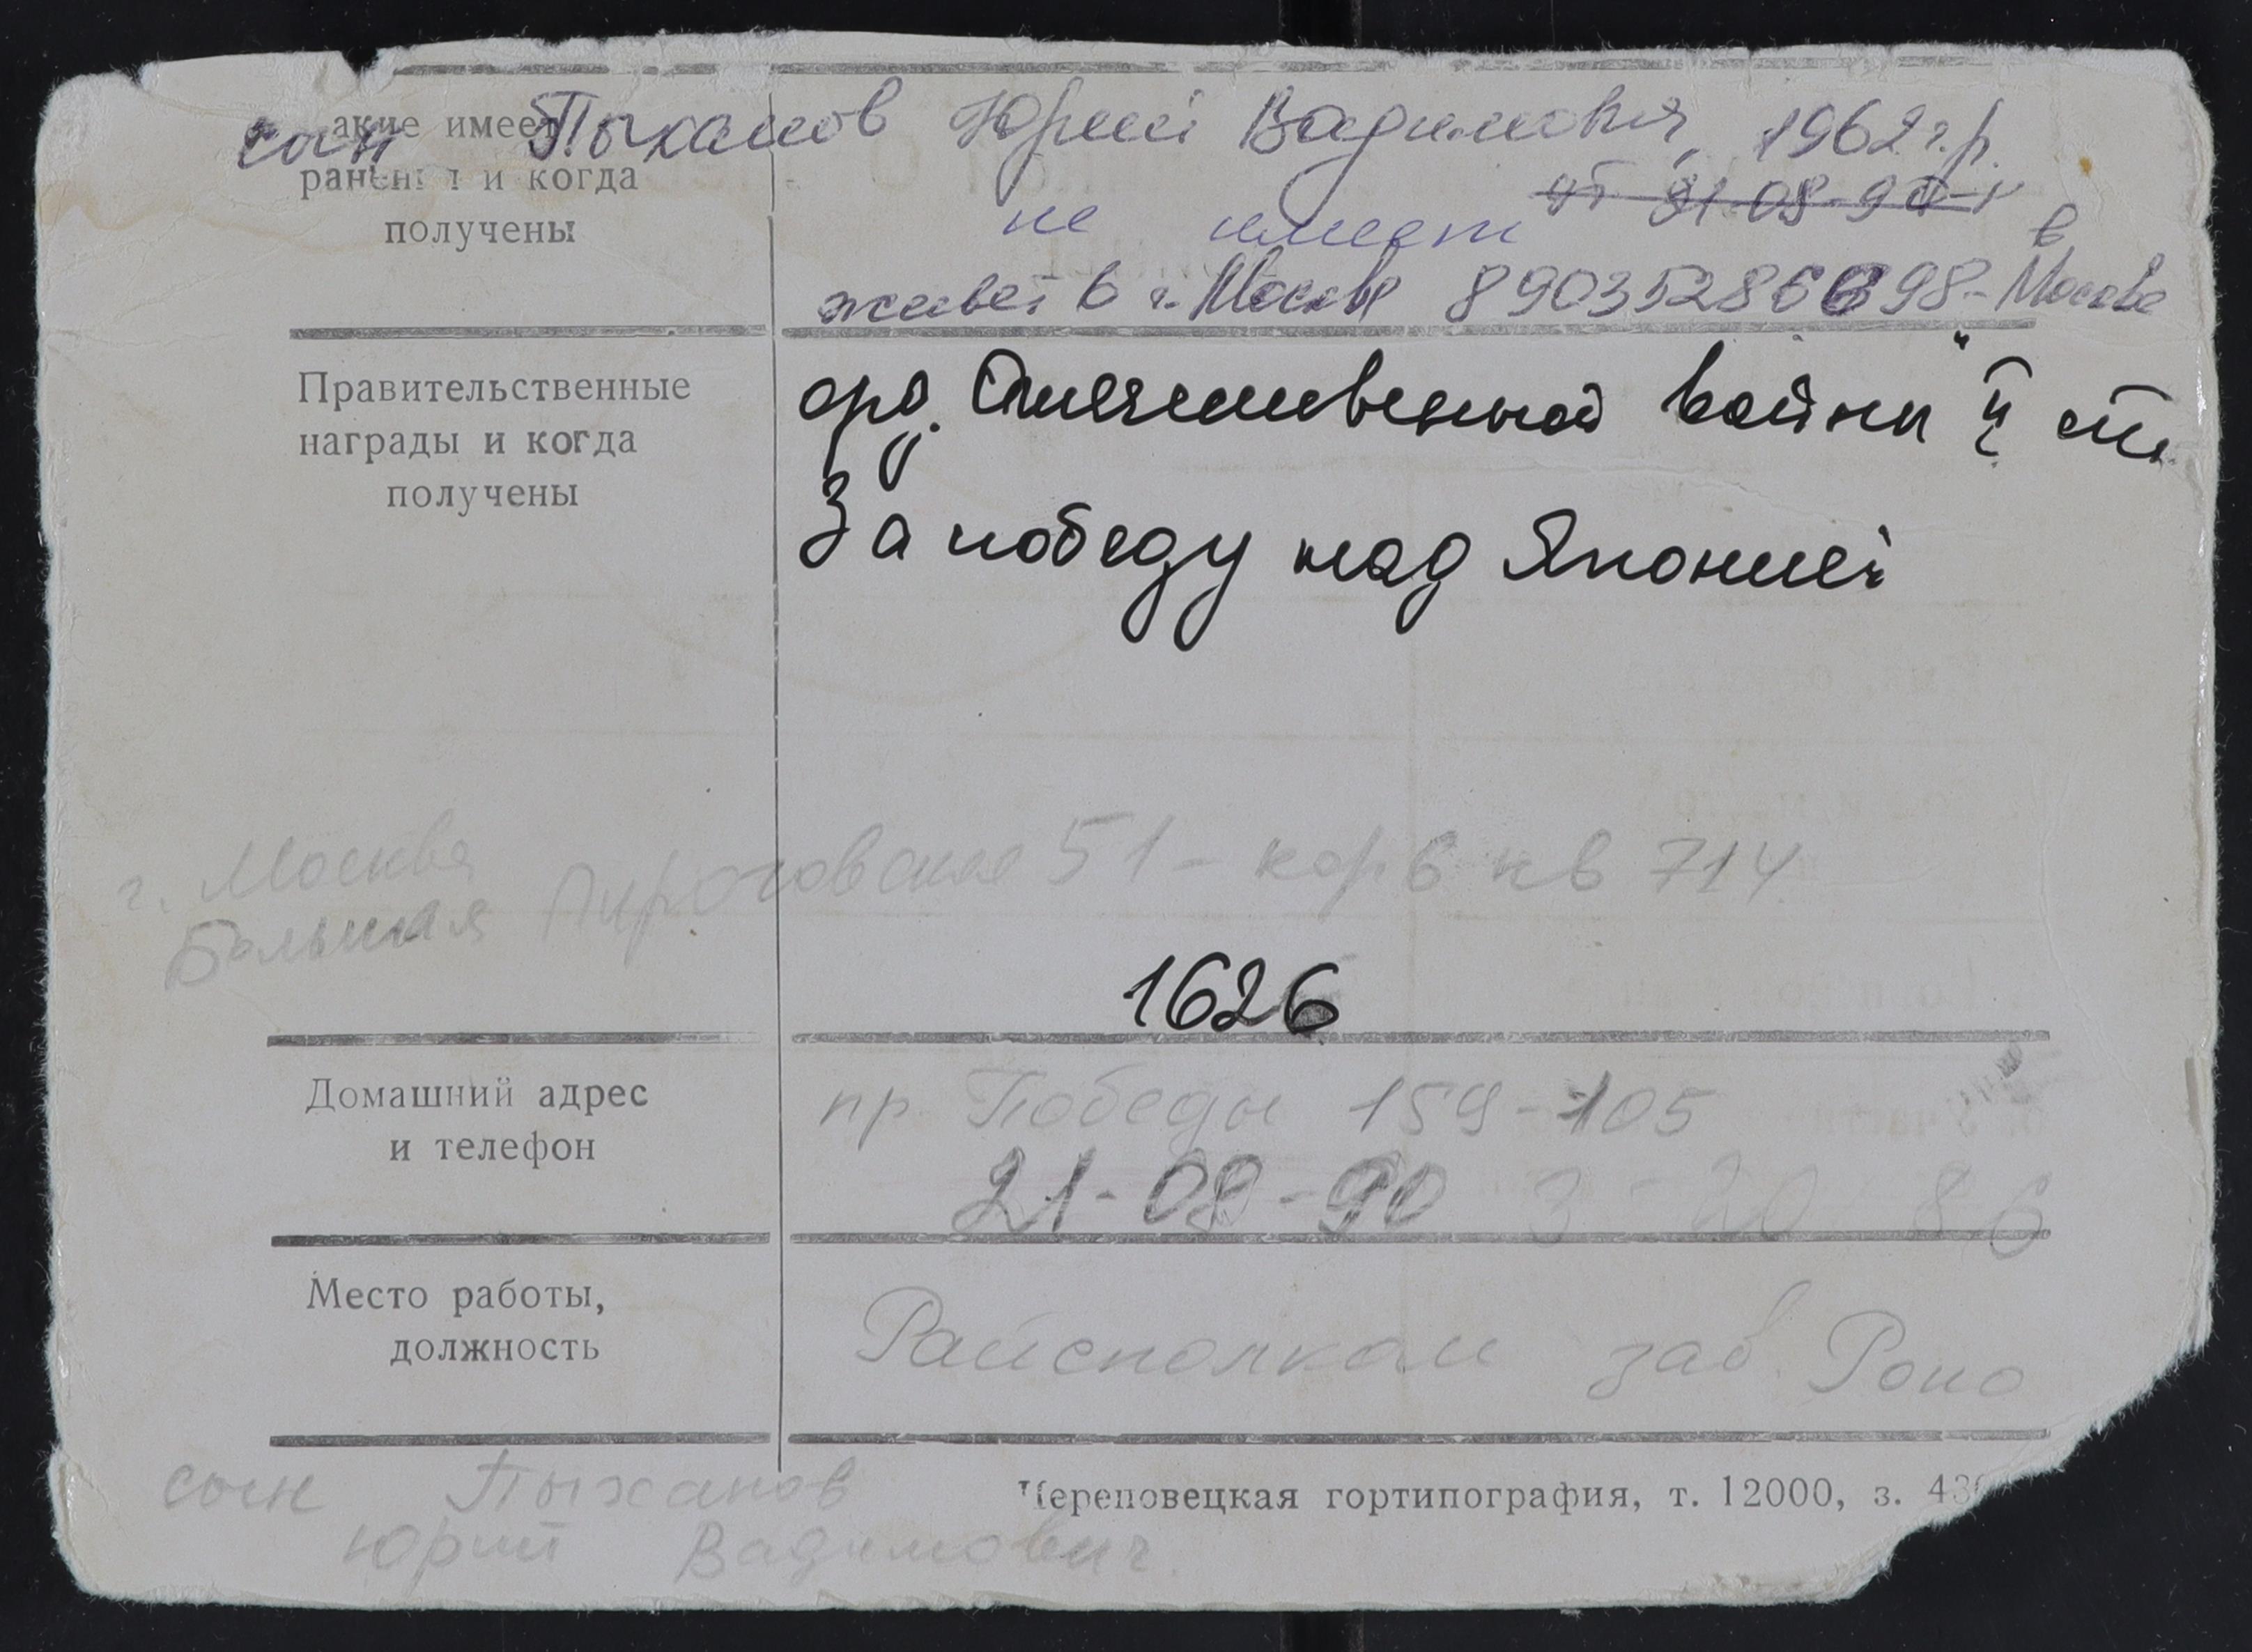 сын Пыханов Юрий Вадимович, 1962 г.р.
акие имеет
ранения и когда
получены
не имеет
живет в г. Москве 89035286698 - Москве
в
Правительственные
награды и когда
получены
орд. „Отечественной войны" II ст.
За победу над Японией
г. Москва
Большая Пироговская 51 - кор 6 кв 714
1626
Домашний адрес
и телефон
пр. Победы 159-105
21-08-90 3-20 86
Место работы,
должность
Райисполком зав. Роно
сын Пыханов
Юрий Вадимович.
Череповецкая гортипография, т. 12000, з. 43